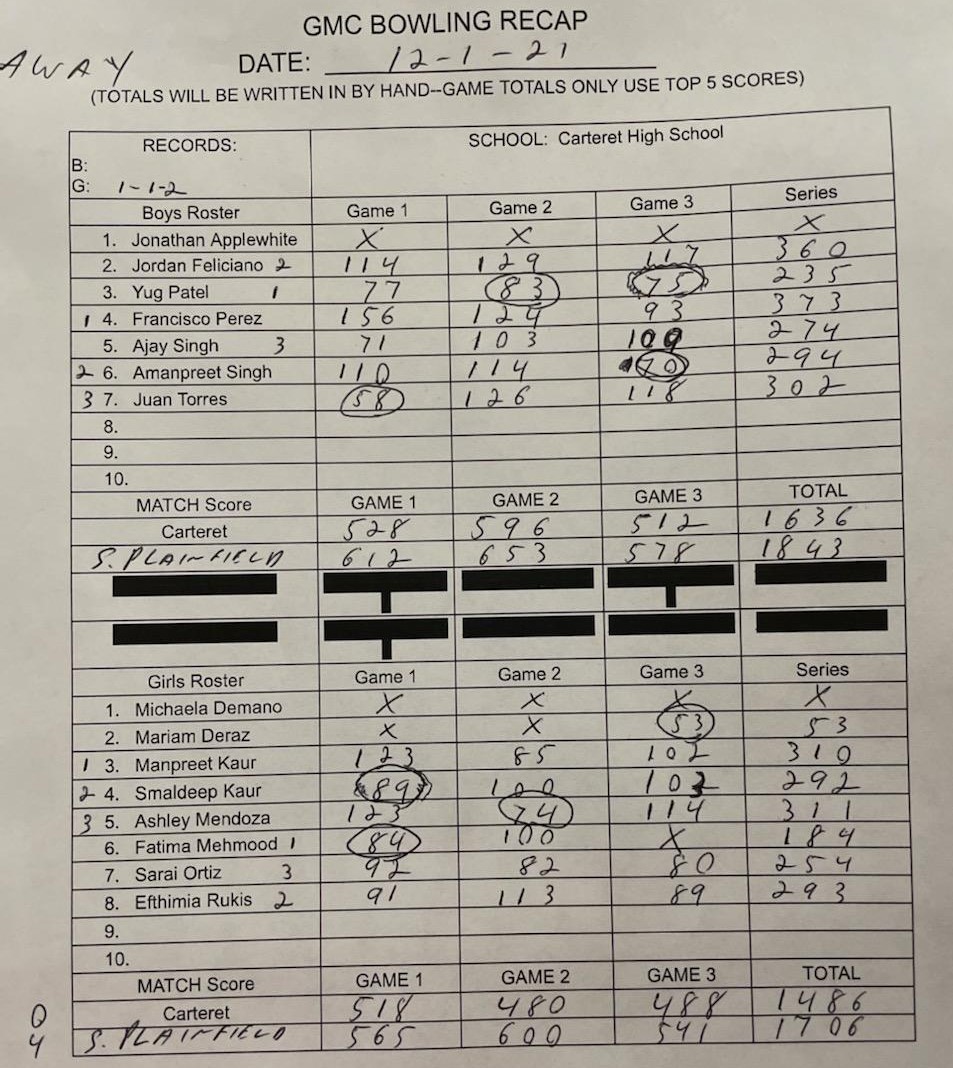 GMC BOWLING RECAP
AWAY DATE: 12-1-21
(TOTALS WILL BE WRITTEN IN BY HAND--GAME TOTALS ONLY USE TOP 5 SCORES)
RECORDS: SCHOOL: Carteret High School
B:
G: 1-1-2
Boys Roster Game 1 Game 2 Game 3 Series
1. Jonathan Applewhite X X X X
2. Jordan Feliciano 2 114 129 117 360
3. Yug Patel 1 77 83 75 235
1 4. Francisco Perez 156 124 93 373
5. Ajay Singh 3 71 103 100 274
2 6. Amanpreet Singh 110 114 70 294
3 7. Juan Torres 58 126 118 302
8.
9.
10.
MATCH Score GAME 1 GAME 2 GAME 3 TOTAL
Carteret 528 596 512 1636
S. PLAINFIELD 612 653 578 1843
Girls Roster Game 1 Game 2 Game 3 Series
1. Michaela Demano X X X X
2. Mariam Deraz X X 53 53
1 3. Manpreet Kaur 123 85 102 310
2 4. Smaldeep Kaur 89 100 103 292
3 5. Ashley Mendoza 123 74 114 311
6. Fatima Mehmood 1 84 100 X 184
7. Sarai Ortiz 3 92 82 80 254
8. Efthimia Rukis 2 91 113 89 293
9.
10.
MATCH Score GAME 1 GAME 2 GAME 3 TOTAL
0 Carteret 518 480 488 1486
4 S. PLAINFIELD 565 600 541 1706